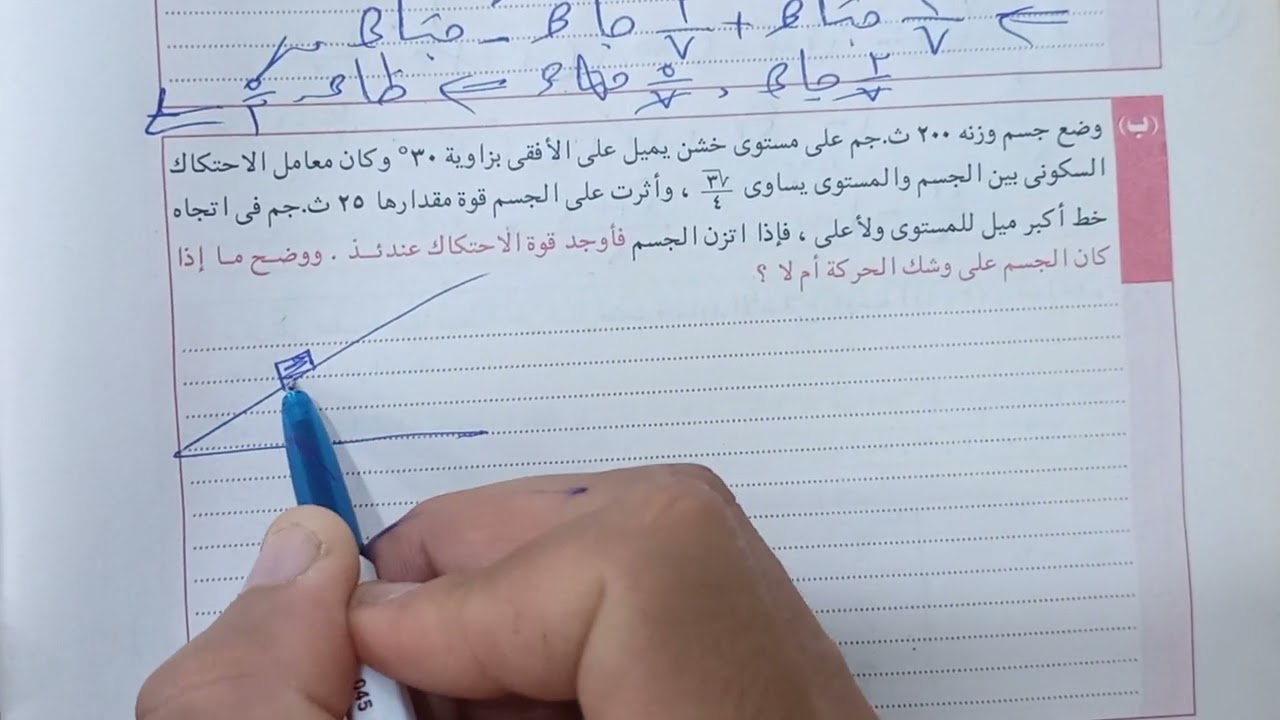 ⇐ ١/٧ حتاهـ + ١/٧ جاهـ = حتاهـ
٢/٧ جاهـ = ٥/٧ حتاهـ ⇐ طاهـ = ٥/٢
(ب) وضع جسم وزنه ٢٠٠ ث.جم على مستوى خشن يميل على الأفقى بزاوية ٣٠° وكان معامل الاحتكاك
السكونى بين الجسم والمستوى يساوى √٣/٤ ، وأثرت على الجسم قوة مقدارها ٢٥ ث.جم فى اتجاه
خط أكبر ميل للمستوى ولأعلى ، فإذا اتزن الجسم فأوجد قوة الاحتكاك عندئذ . ووضح ما إذا
كان الجسم على وشك الحركة أم لا ؟
045